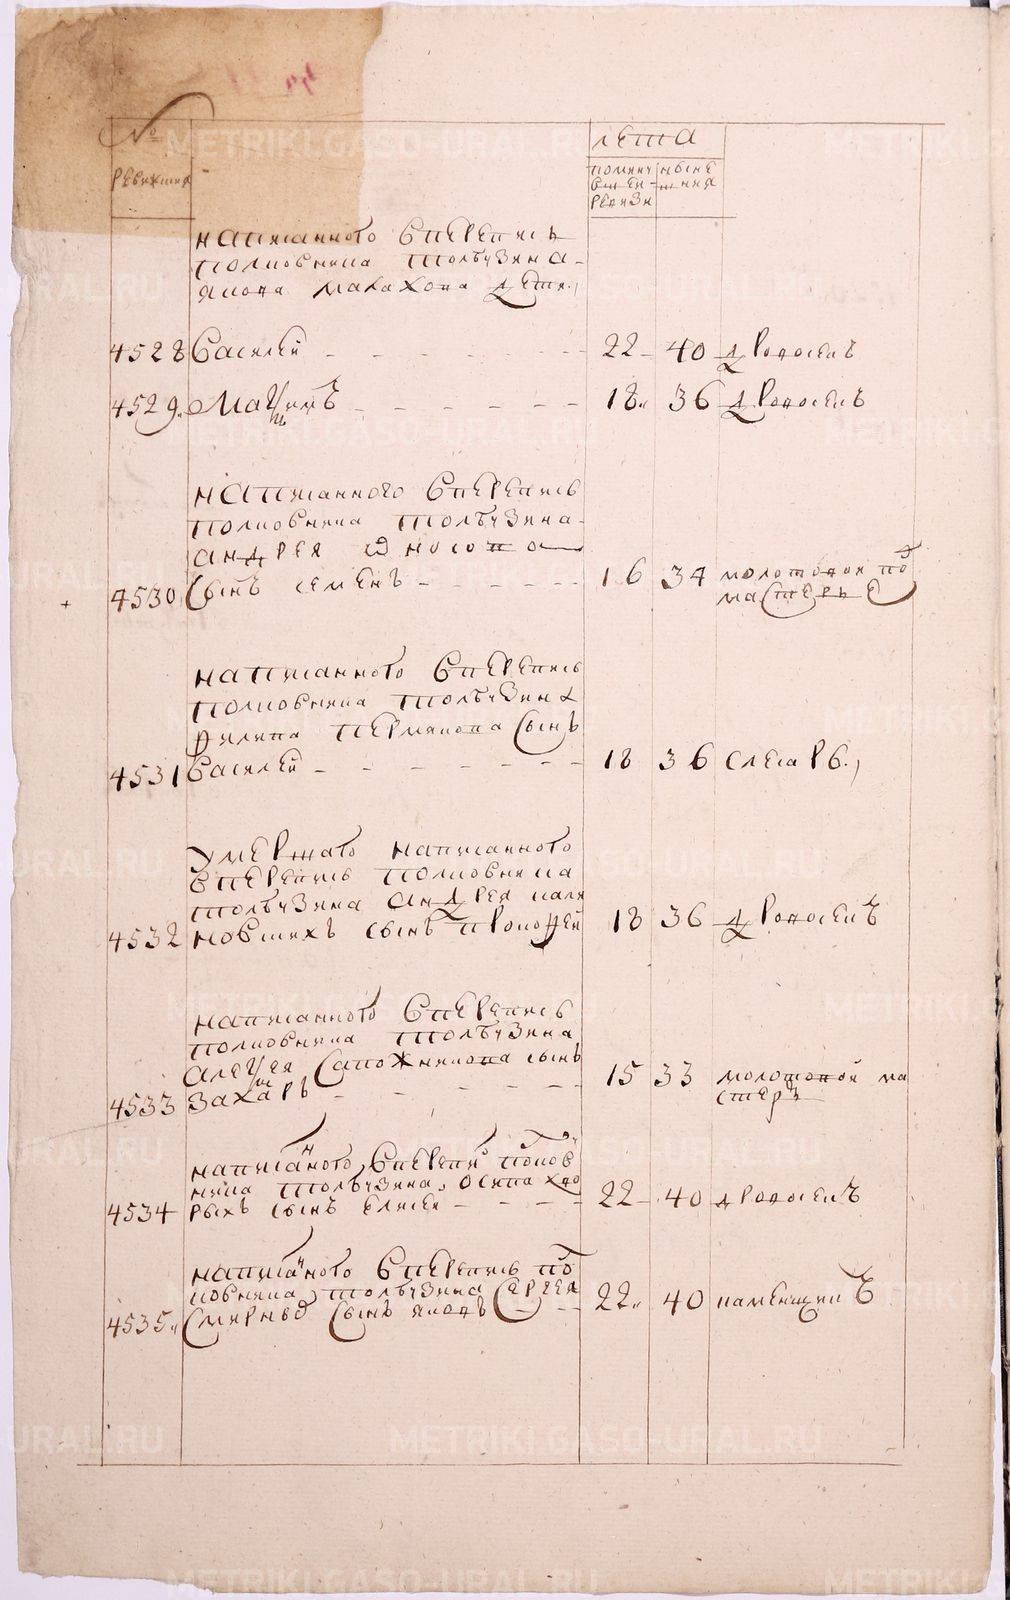 №
ревизия
лета
помянутой
ревизи
ныне
шния
написанного в переписи
полковника толбузина
якова малахова дети,
4528 Василей 22 40 дровосекъ
4529. Максимъ 18. 36 дровосекъ
написанного в перепись
полковника толбузина
андрея
4530 сынъ семенъ 16 34 молотовой под
мастерье
написанного в перепись
полковника толбузина
филипа пермякова сынъ
4531 Василей 18 36 слесарь,
умершаго написанного
в переписъ полковника
толбузина андрея каля
4532 новских сынъ прокофей 18 36 дровосекъ
написанного в переписъ
полковника толбузина
алексея сапожникова сынъ
4533 захаръ 15 33 молотовой ма
стеръ
написанного в перепи полков
ника толбузина, осипа
4534 рыхъ сынъ елисей 22 40 дровосекъ
написанного в переписъ пол
ковника толбузина сергея
4535. смирнова сынъ яковъ 22. 40 каменщикъ
METRIKI.GASO-URAL.RU